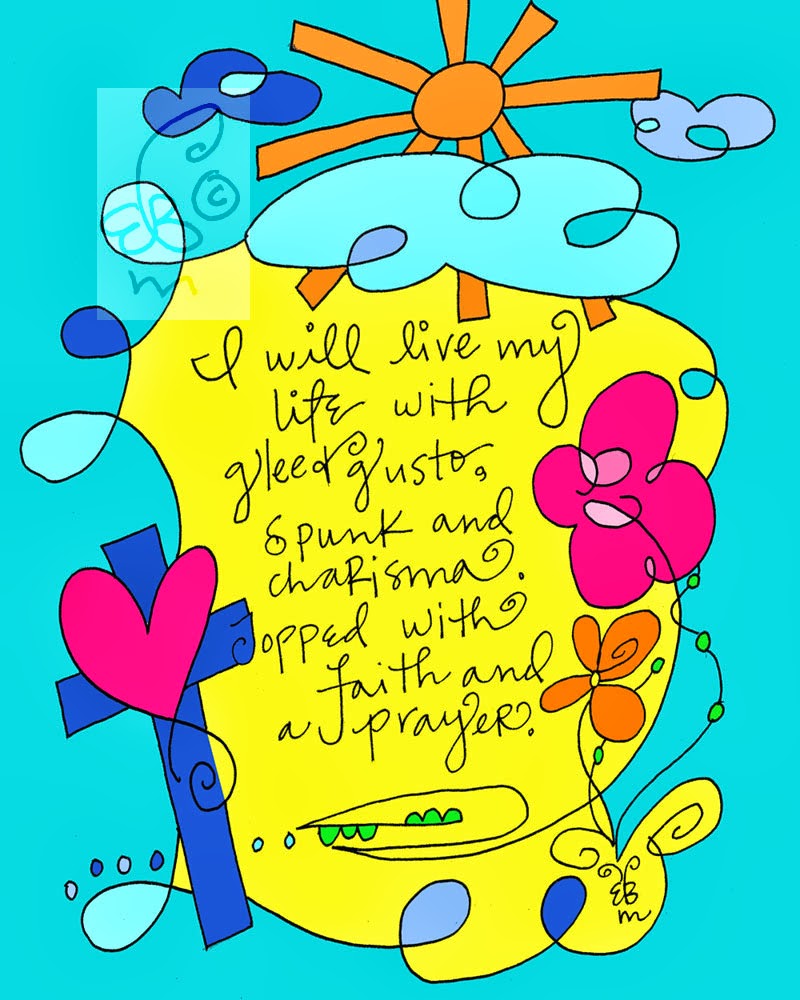 ©
EB
m
I will live my
life with
glee & gusto,
spunk and
chaRisma.
Topped with
faith and
a prayeR.
EB
m